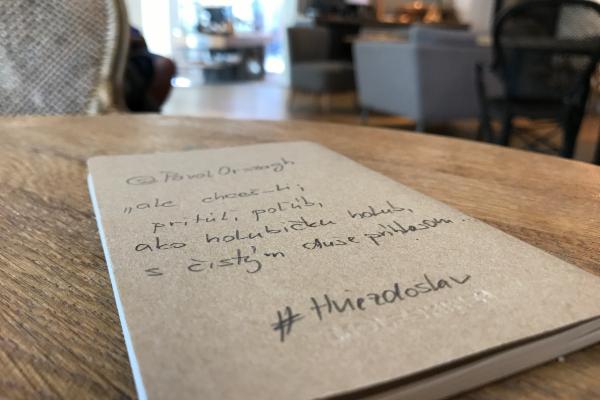 @Pavol Országh
„ale chceš-li,
pritúl, poľúb,
ako holubičku holub,
s čistým duse príhlasom...
#Hviezdoslav